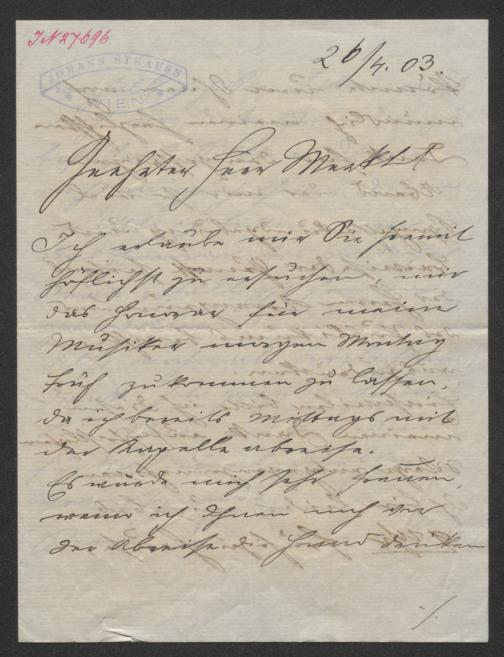 IN 27696
JOHANN STRAUSS
WIEN
26/4. 03
Geehrter Herr Merkt
Ich erlaube mir Sie hiemit
höflichst zu ersuchen, mir
das Honorar für meine
Musiker morgen Montag
früh zukommen zu lassen,
da ich bereits Mittags mit
der Kapelle abreise.
Es würde mich sehr freuen,
wenn ich Ihnen noch vor
der Abreise die Hand drücken
./.